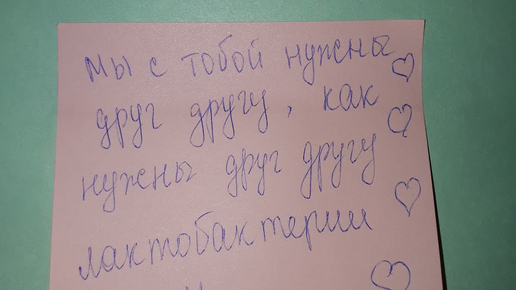 Мы с тобой нужны
друг другу, как
нужны друг другу
лактобактерии